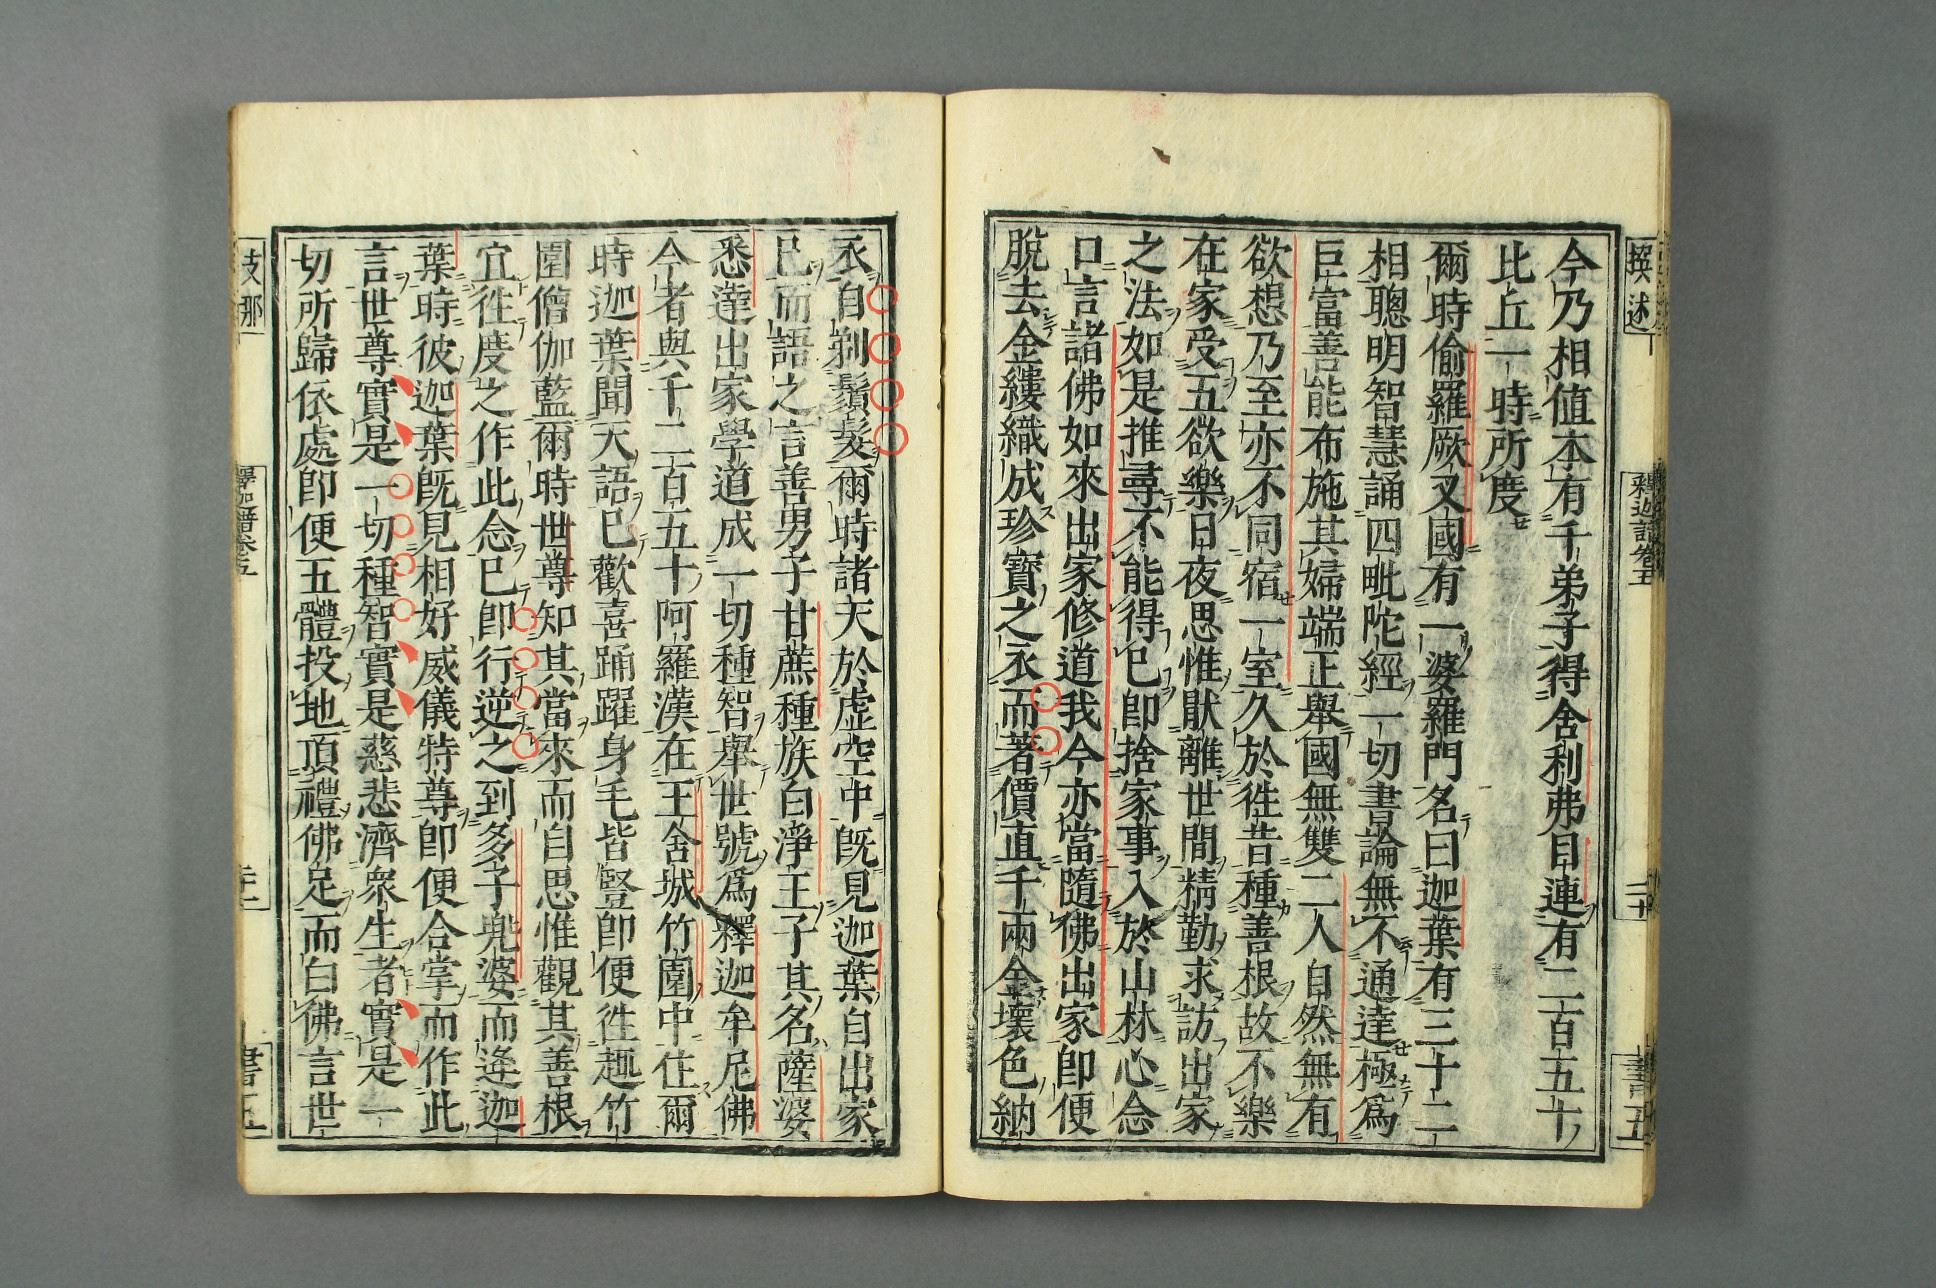 撰述
釋迦譜卷五
二十
書五
今乃相值本有千弟子得舍利弗目連有二百五十
比丘一時所度
爾時偷羅厥叉國有一婆羅門名曰迦葉有三十二
相聰明智慧誦四毗陀經一切書論無不通達極為
巨富善能布施其婦端正舉國無雙二人自然無有
欲想乃至亦不同宿一室久於徃昔種善根故不樂
在家受五欲樂日夜思惟猒離世間精勤求訪出家
之法如是推尋不能得已即捨家事入於山林心念
口言諸佛如來出家修道我今亦當隨佛出家即便
脫去金縷織成珍寶之衣而著價直千兩金壞色納
衣自剃鬚髮爾時諸天於虛空中既見迦葉自出家
已而語之言善男子甘蔗種族白淨王子其名薩婆
悉達出家學道成一切種智舉世號為釋迦牟尼佛
今者與千二百五十阿羅漢在王舍城竹園中住爾
時迦葉聞天語已歡喜踊躍身毛皆豎即便徃趣竹
園僧伽藍爾時世尊知其當來而自思惟觀其善根
宜徃度之作此念已即行逆之到多子兜婆而逢迦
葉時彼迦葉既見相好威儀特尊即便合掌而作此
言世尊實是一切種智實是慈悲濟衆生者實是一
切所歸依處即便五體投地頂禮佛足而白佛言世
支那
釋迦譜卷五
書五